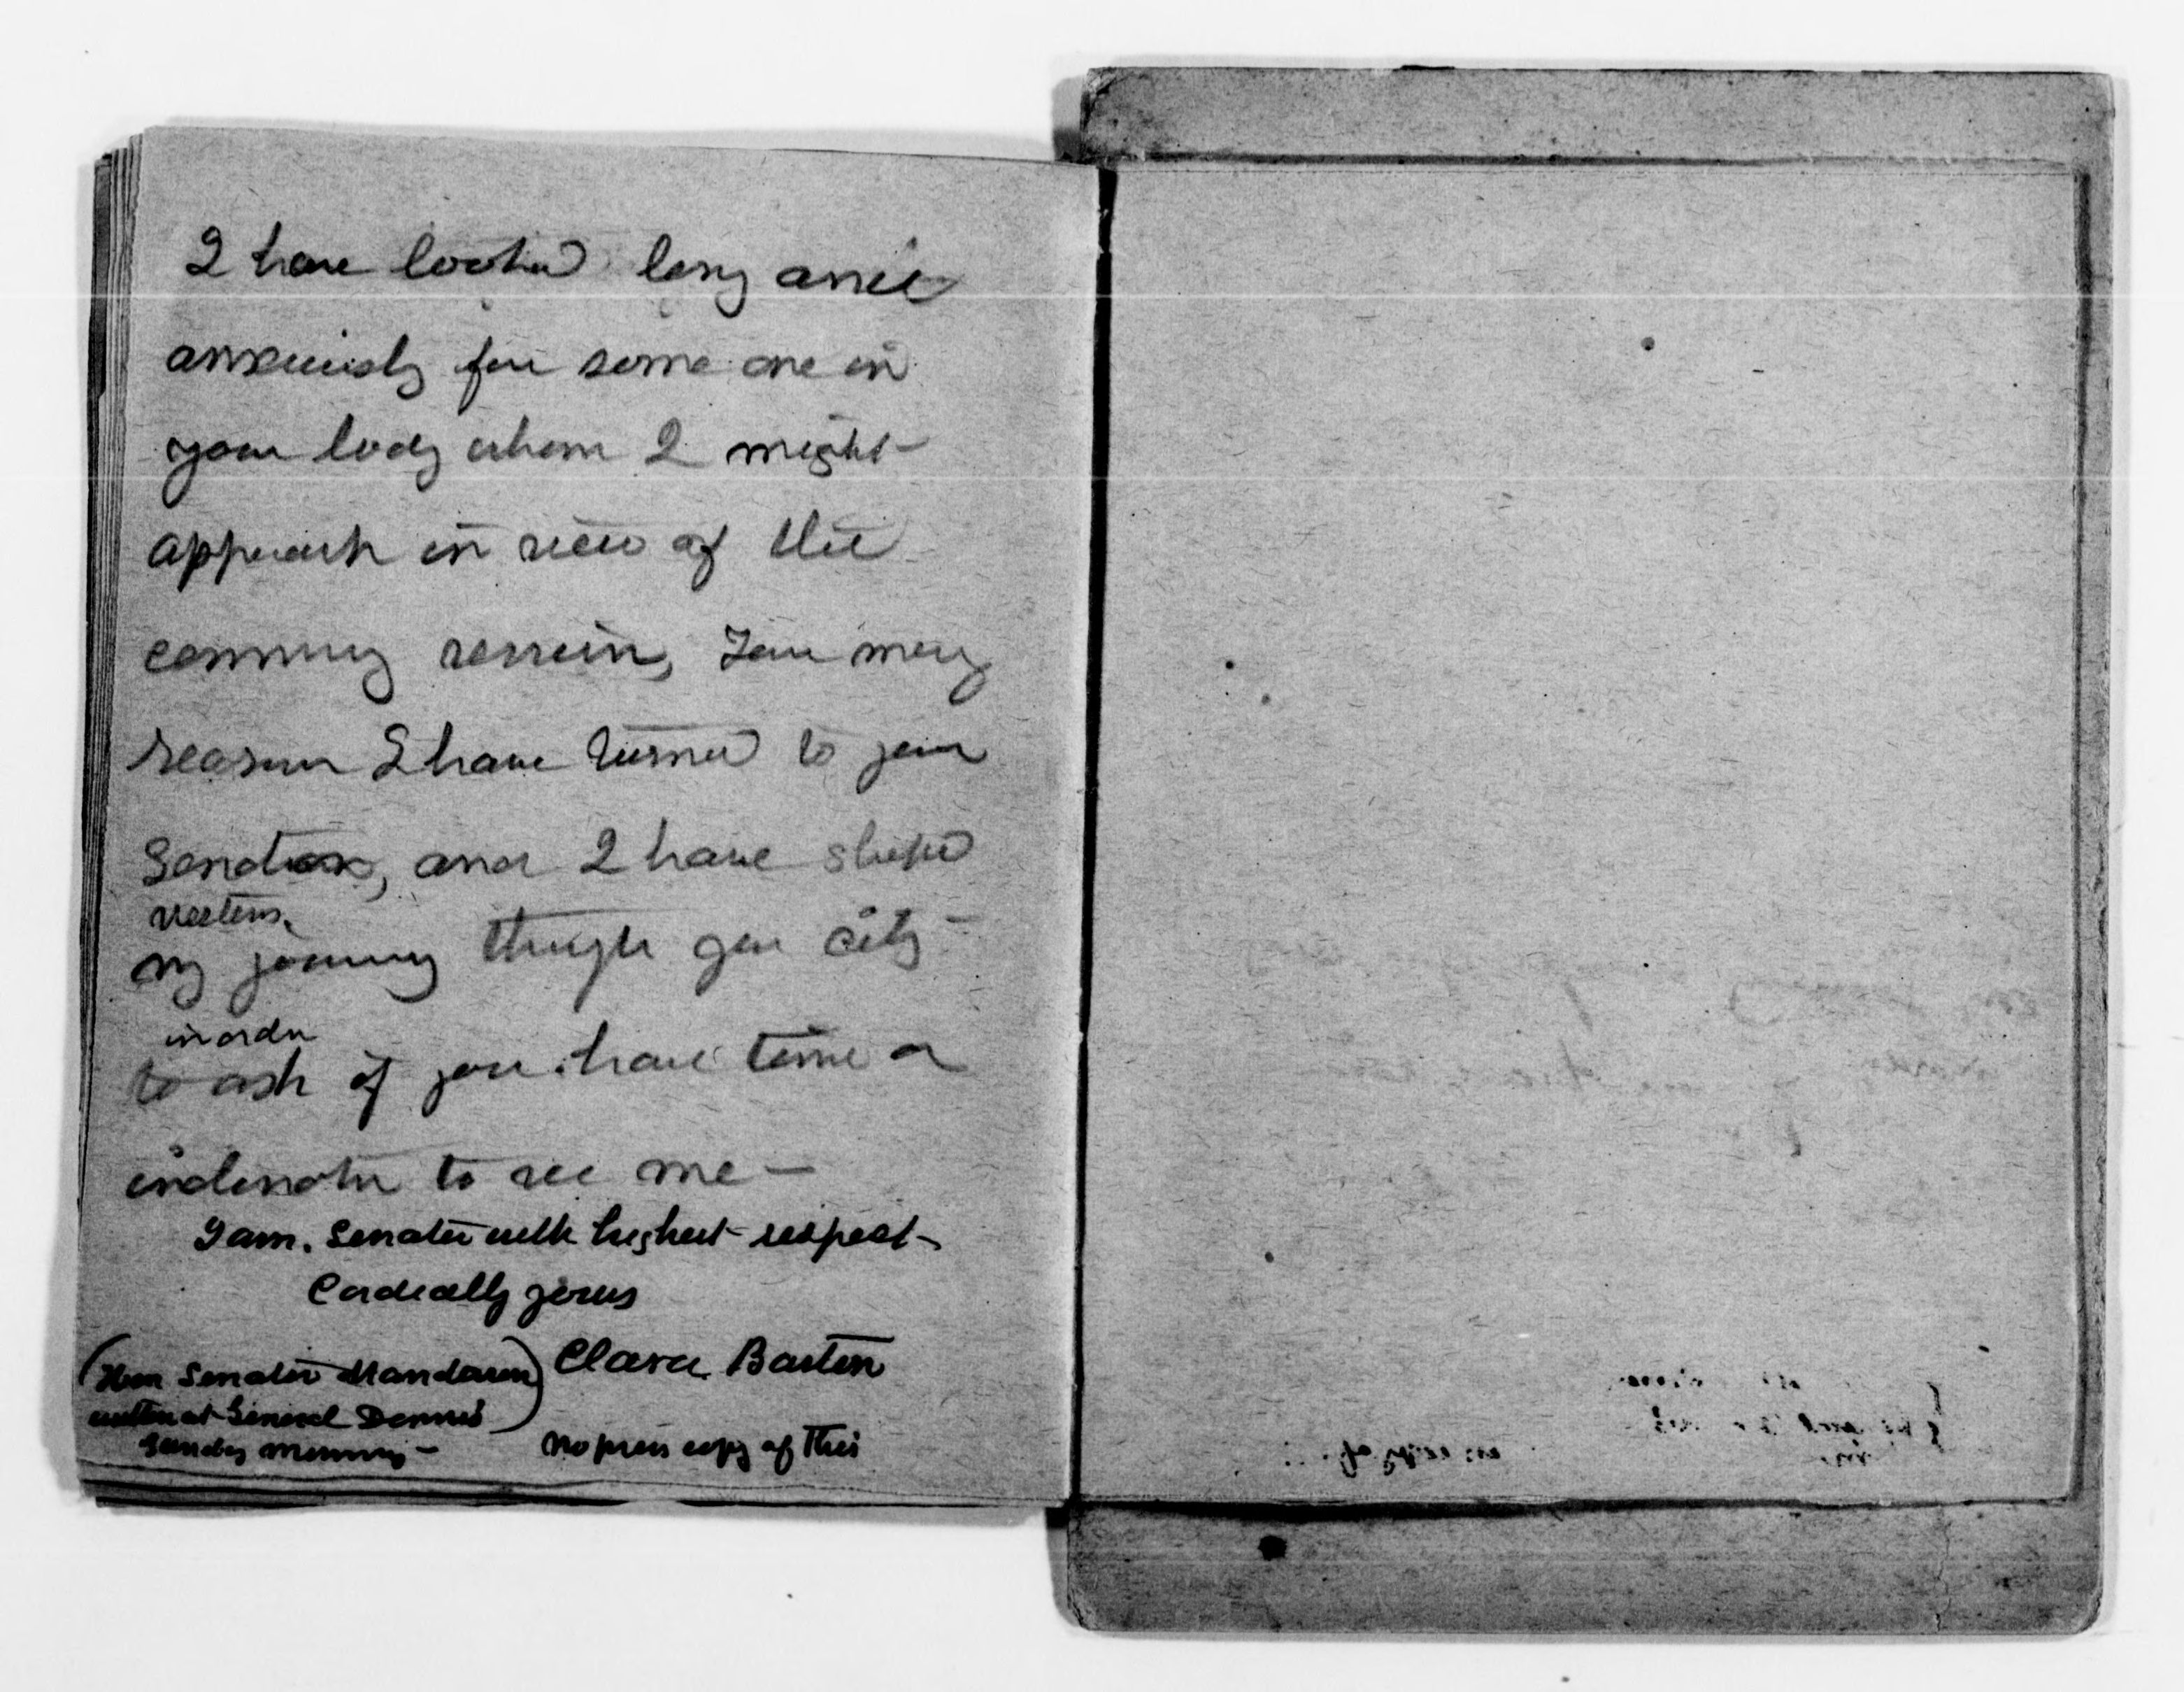 I have looked long and
anxiously for some one in
your body whom I might
approach in view of the
coming session, You may
reason I have turned to you
Senator, and I have
western
my journey through your city
in order
to ask if you have time or
inclination to see me —
I am, Senator with highest respect
Cordially yours
Clara Barton
(Hon Senator
written at General Dennis
Sunday morning —
no press copy of this